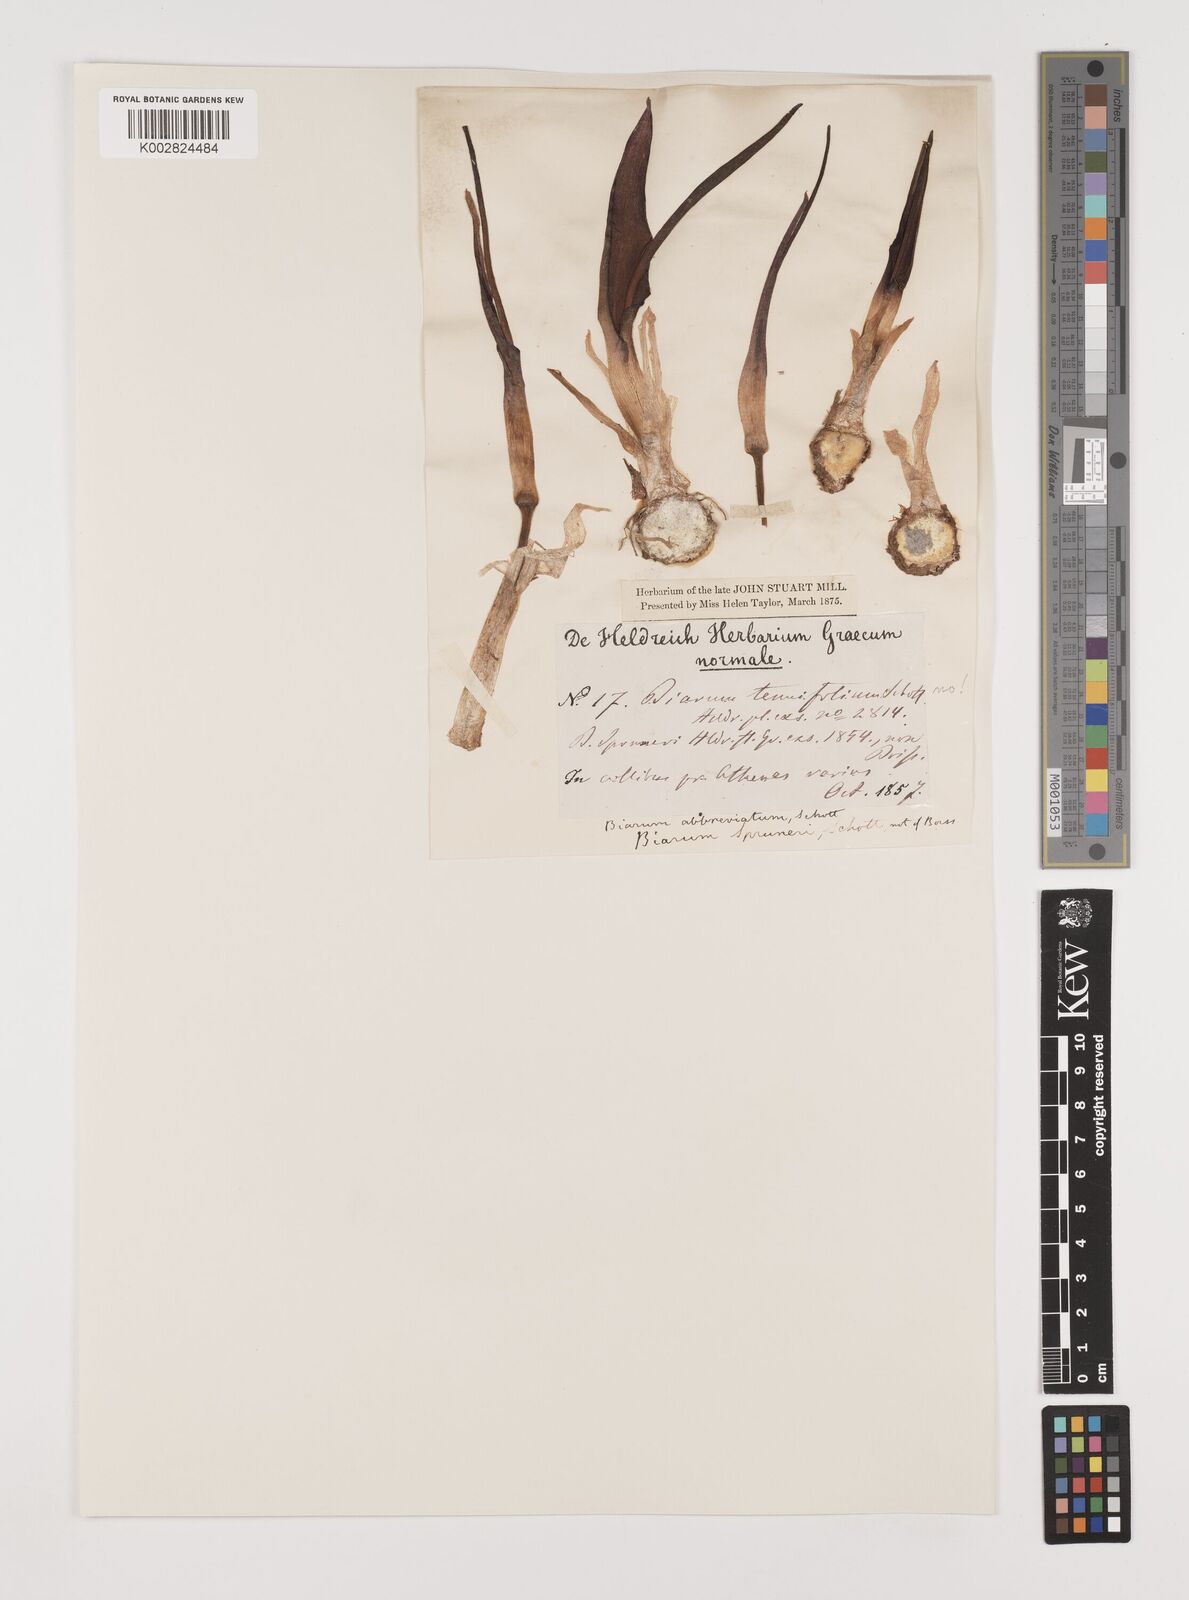 ROYAL BOTANIC GARDENS KEW
K002824484
Herbarium of the late JOHN STUART MILL.
Presented by Miss Helen Taylor, March 1875.
De Heldreich Herbarium Graecum
normale.
No 17. Biarum tenuifolium Schott. no!
Heldr. pl. exs. no 2814.
B. Spruneri Hldr. fl. Gr. exs. 1854., non
Boiss.
In collibus pr. Athenas
Oct. 1857.
Biarum abbreviatum, Schott
Biarum Spruneri, Schott, not of Boiss
inches
centimeters
Density
Don Williams
M001053
Kew
Royal Botanic Gardens
copyright reserved
0 1 2 3 4 5 6 7 8 9 10
cm